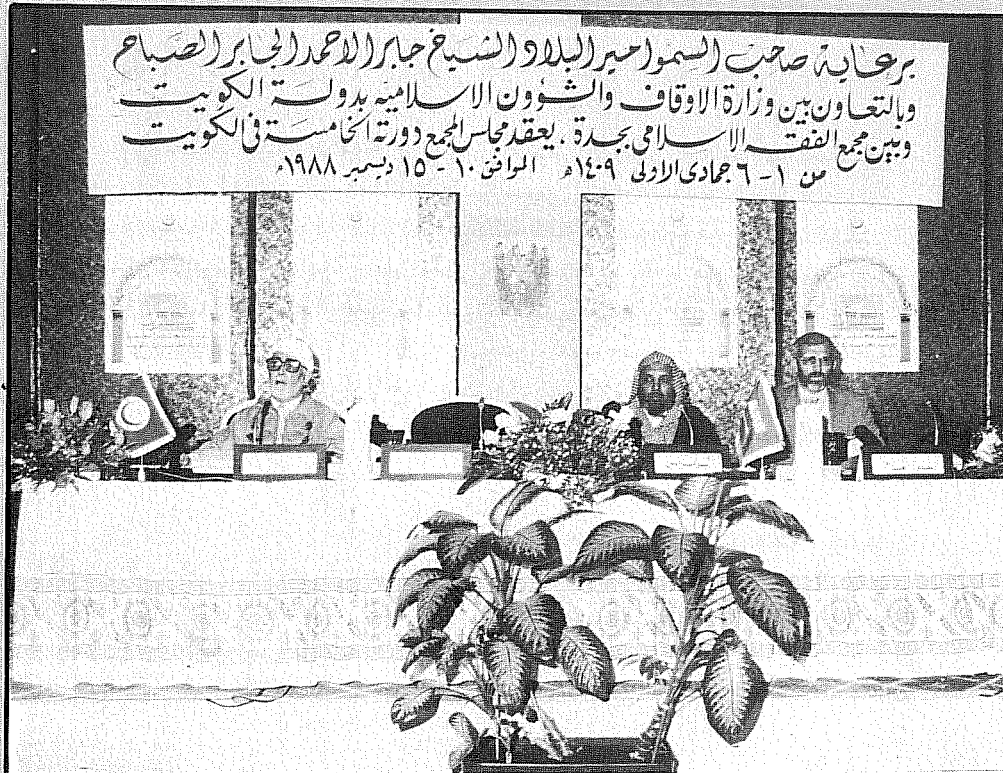 برعاية صاحب السمو امير البلاد الشيخ جابر الاحمد الجابر الصباح
وبالتعاون بين وزارة الاوقاف والشؤون الاسلامية بدولة الكويت
وبين مجمع الفقه الاسلامي بجدة ، يعقد مجلس المجمع دورته الخامسة في الكويت
من ١ - ٦ جمادى الاولى ١٤٠٩هـ الموافق ١٠ - ١٥ ديسمبر ١٩٨٨م